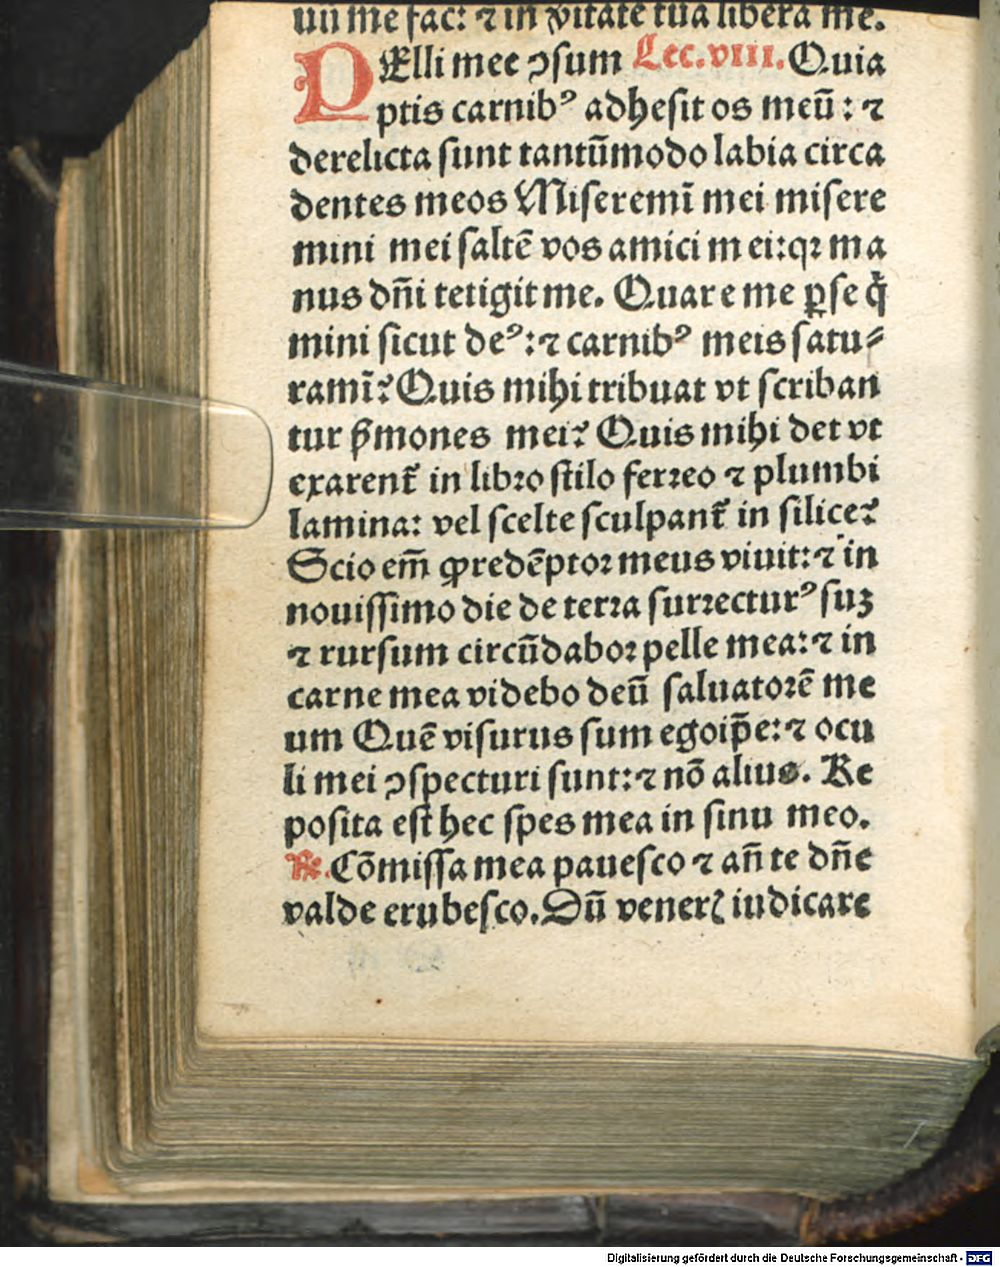 uū me fac: ⁊ in ꝟitate tua libera me.
PElli mee ɔsum Lec. viii. Quia
ptis carnibꝰ adhesit os meū: ⁊
derelicta sunt tantūmodo labia circa
dentes meos Miseremī mei misere
mini mei saltē vos amici mei: qꝛ ma
nus dn̄i tetigit me. Quare me ꝑseq̄
mini sicut deꝰ: ⁊ carnibꝰ meis satu⸗
ramī? Quis mihi tribuat vt scriban
tur ẜmones mei? Quis mihi det vt
exarent̄ in libro stilo ferreo ⁊ plumbi
lamina: vel scelte sculpant̄ in silice?
Scio em̄ ꝙ redēptor meus viuit: ⁊ in
nouissimo die de terra surrecturꝰ suꝫ
⁊ rursum circūdabor pelle mea: ⁊ in
carne mea videbo deū saluatorē me
um Quē visurus sum ego ip̄e: ⁊ ocu
li mei ɔspecturi sunt: ⁊ nō alius. Re
posita est hec spes mea in sinu meo.
℟. Cōmissa mea pauesco ⁊ an̄ te dn̄e
valde erubesco. Dū venerꝭ iudicare
Digitalisierung gefördert durch die Deutsche Forschungsgemeinschaft - DFG